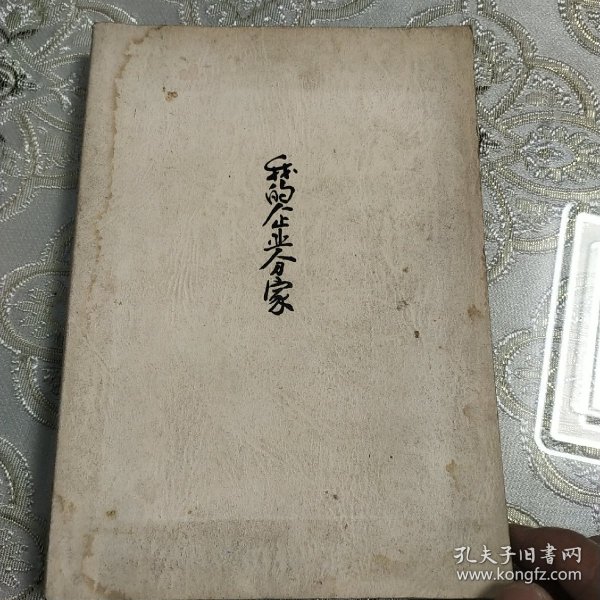 我的企业分家
孔夫子旧书网
www.kongfz.com